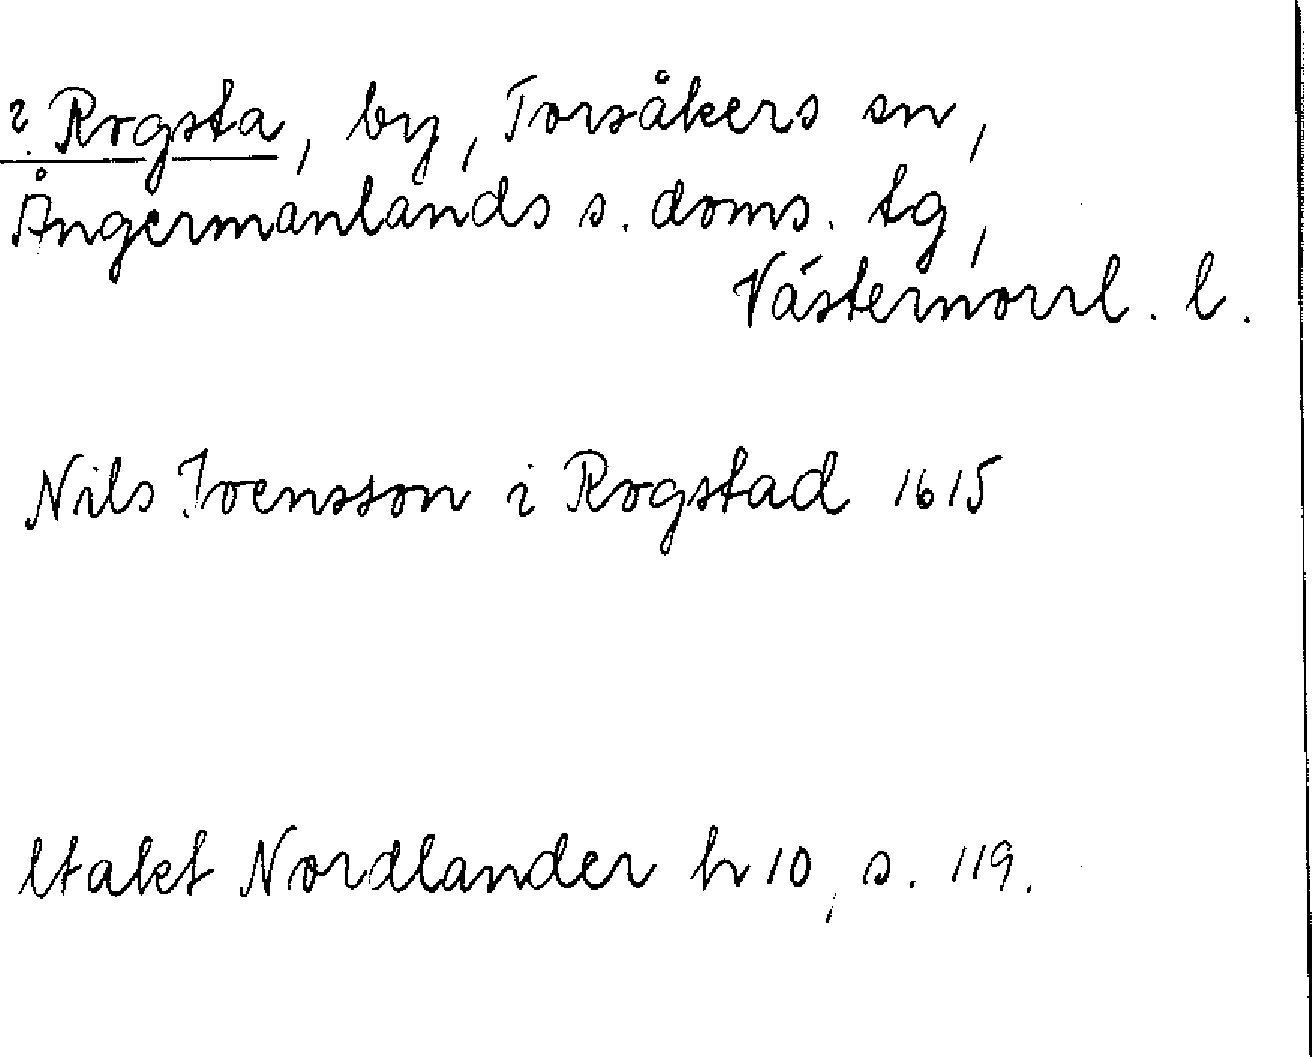 ? Rogsta, by, Torsåkers sn,
Ångermanlands s. doms. tg,
Västernorrl. l.
Nils Ivensson i Rogstad 1615
Utakt Nordlander h 10, s. 119.